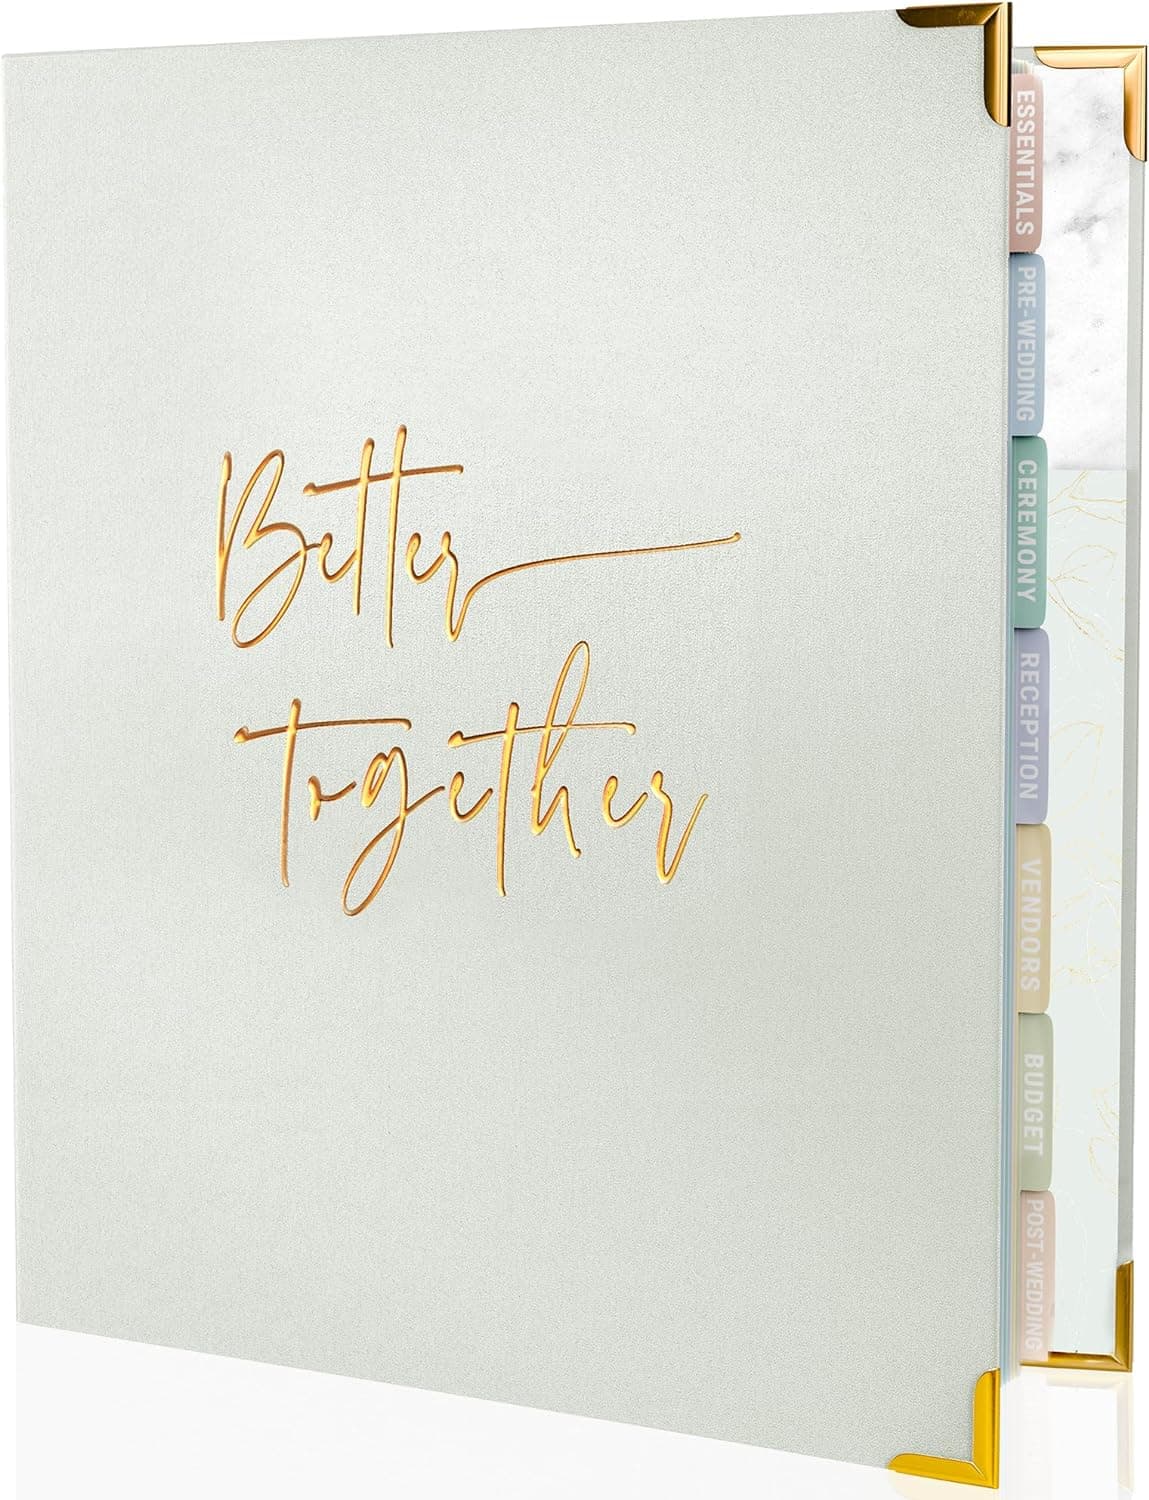 Better
Together
ESSENTIALS
PRE-WEDDING
CEREMONY
RECEPTION
VENDORS
BUDGET
POST-WEDDING